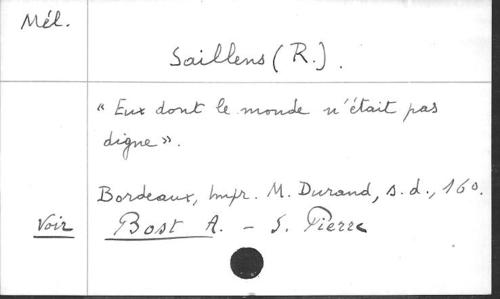 Mél.
Saillens (R.).
« Eux dont le monde n'était pas
digne ».
Bordeaux, Impr. M. Durand, s.d., 16o.
Voir Bost A. – S. Pierre